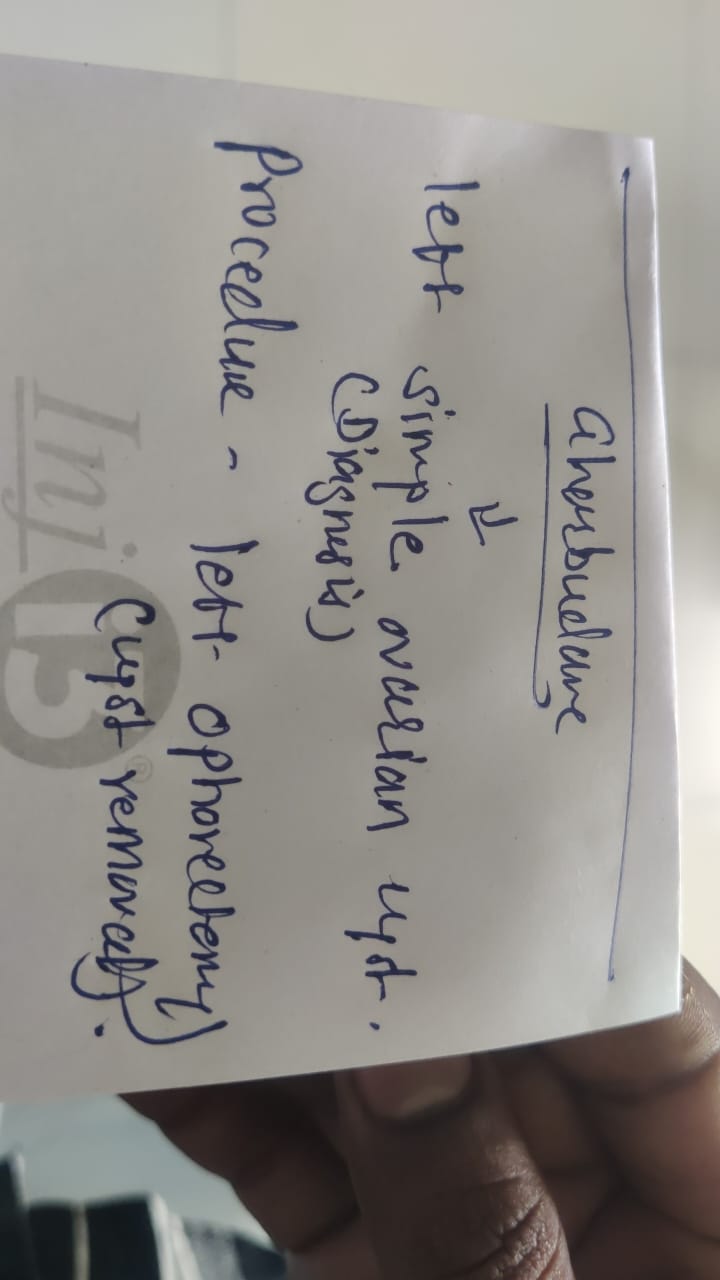 Gharbudave
left simple ovarian cyst.
(Diagnosis)
Procedure - left ophorectomy
(cyst removal).
Inj 13 ®